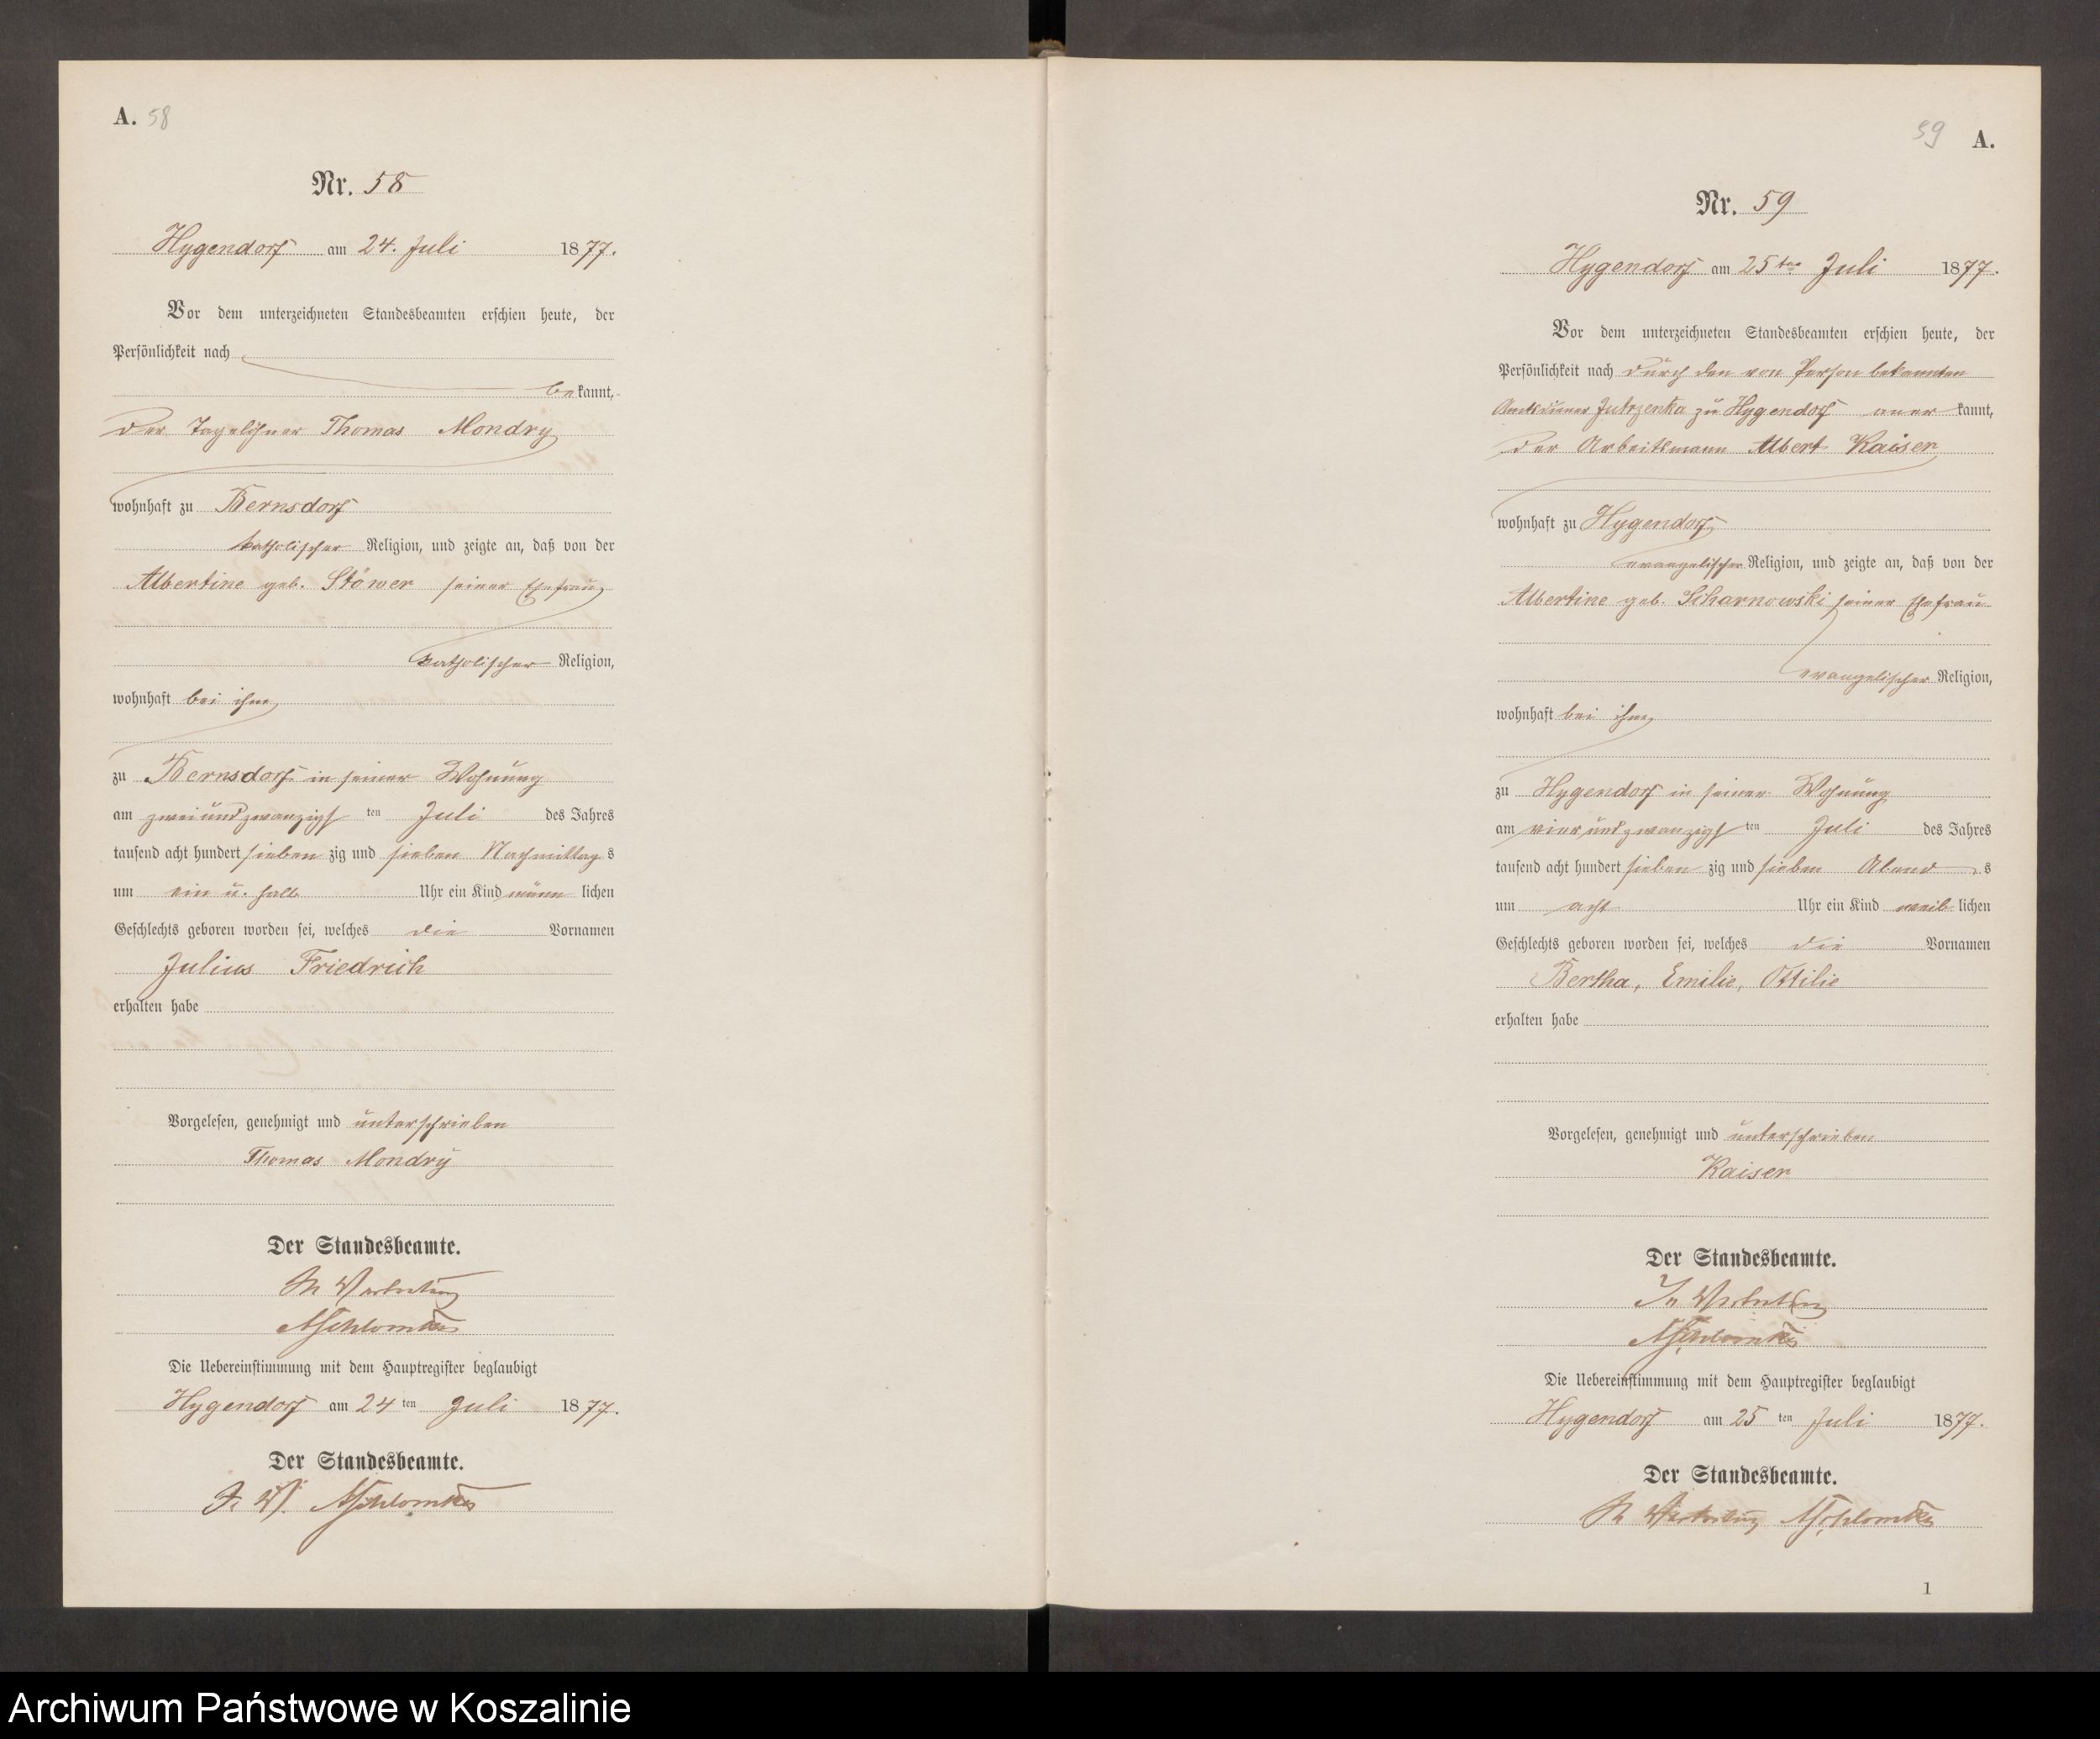 A. 58
Nr. 58
Hygendorf am 24. Juli 1877.
Vor dem unterzeichneten Standesbeamten erschien heute, der
Persönlichkeit nach
bekannt,
der Tagelöhner Thomas Mondry
wohnhaft zu Bernsdorf
katholischer Religion, und zeigte an, daß von der
Albertine geb. Stöwer seiner Ehefrau
katholischer Religion,
wohnhaft bei ihm
zu Bernsdorf in seiner Wohnung
am zweiundzwanzigsten Juli des Jahres
tausend acht hundert siebenzig und sieben Nachmittags
um ein u. halb Uhr ein Kind männlichen
Geschlechts geboren worden sei, welches die Vornamen
Julius Friedrich
erhalten habe
Vorgelesen, genehmigt und unterschrieben
Thomas Mondry
Der Standesbeamte.
In Vertretung
Die Uebereinstimmung mit dem Hauptregister beglaubigt
Hygendorf am 24 ten Juli 1877.
Der Standesbeamte.
I. V.
59 A.
Nr. 59
Hygendorf am 25ten Juli 1877.
Vor dem unterzeichneten Standesbeamten erschien heute, der
Persönlichkeit nach durch den von Person bekannten
Amtsdiener Jutrzenka zu Hygendorf anerkannt,
der Arbeitsmann Albert Kaiser
wohnhaft zu Hygendorf
evangelischer Religion, und zeigte an, daß von der
Albertine geb. Scharnowski seiner Ehefrau
evangelischer Religion,
wohnhaft bei ihm
zu Hygendorf in seiner Wohnung
am vierundzwanzigsten Juli des Jahres
tausend acht hundert siebenzig und sieben Abends
um acht Uhr ein Kind weiblichen
Geschlechts geboren worden sei, welches die Vornamen
Bertha, Emilie, Ottilie
erhalten habe
Vorgelesen, genehmigt und unterschrieben
Kaiser
Der Standesbeamte.
In Vertretung
Die Uebereinstimmung mit dem Hauptregister beglaubigt
Hygendorf am 25 ten Juli 1877.
Der Standesbeamte.
In Vertretung
1
Archiwum Państwowe w Koszalinie